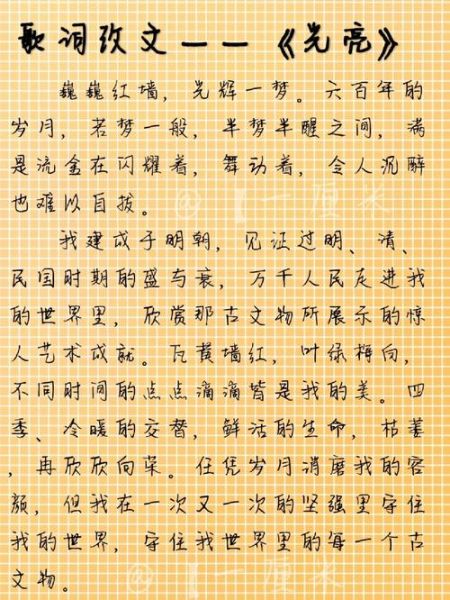 歌词改文——《光亮》
巍巍红墙，光辉一梦。六百年的
岁月，若梦一般，半梦半醒之间，满
是流金在闪耀着，舞动着，令人沉醉
也难以自拔。
我建成于明朝，见证过明、清、
民国时期的盛与衰，万千人民走进我
的世界里，欣赏那古文物所展示的惊
人艺术成就。瓦黄墙红，叶绿梅向，
不同时间的点点滴滴皆是我的美。四
季、冷暖的交替，鲜活的生命，枯萎
，再欣欣向荣。任凭岁月消磨我的容
颜，但我在一次又一次的坚强里守住
我的世界，守住我世界里的每一个古
文物。
@【一厘米
@【一厘米